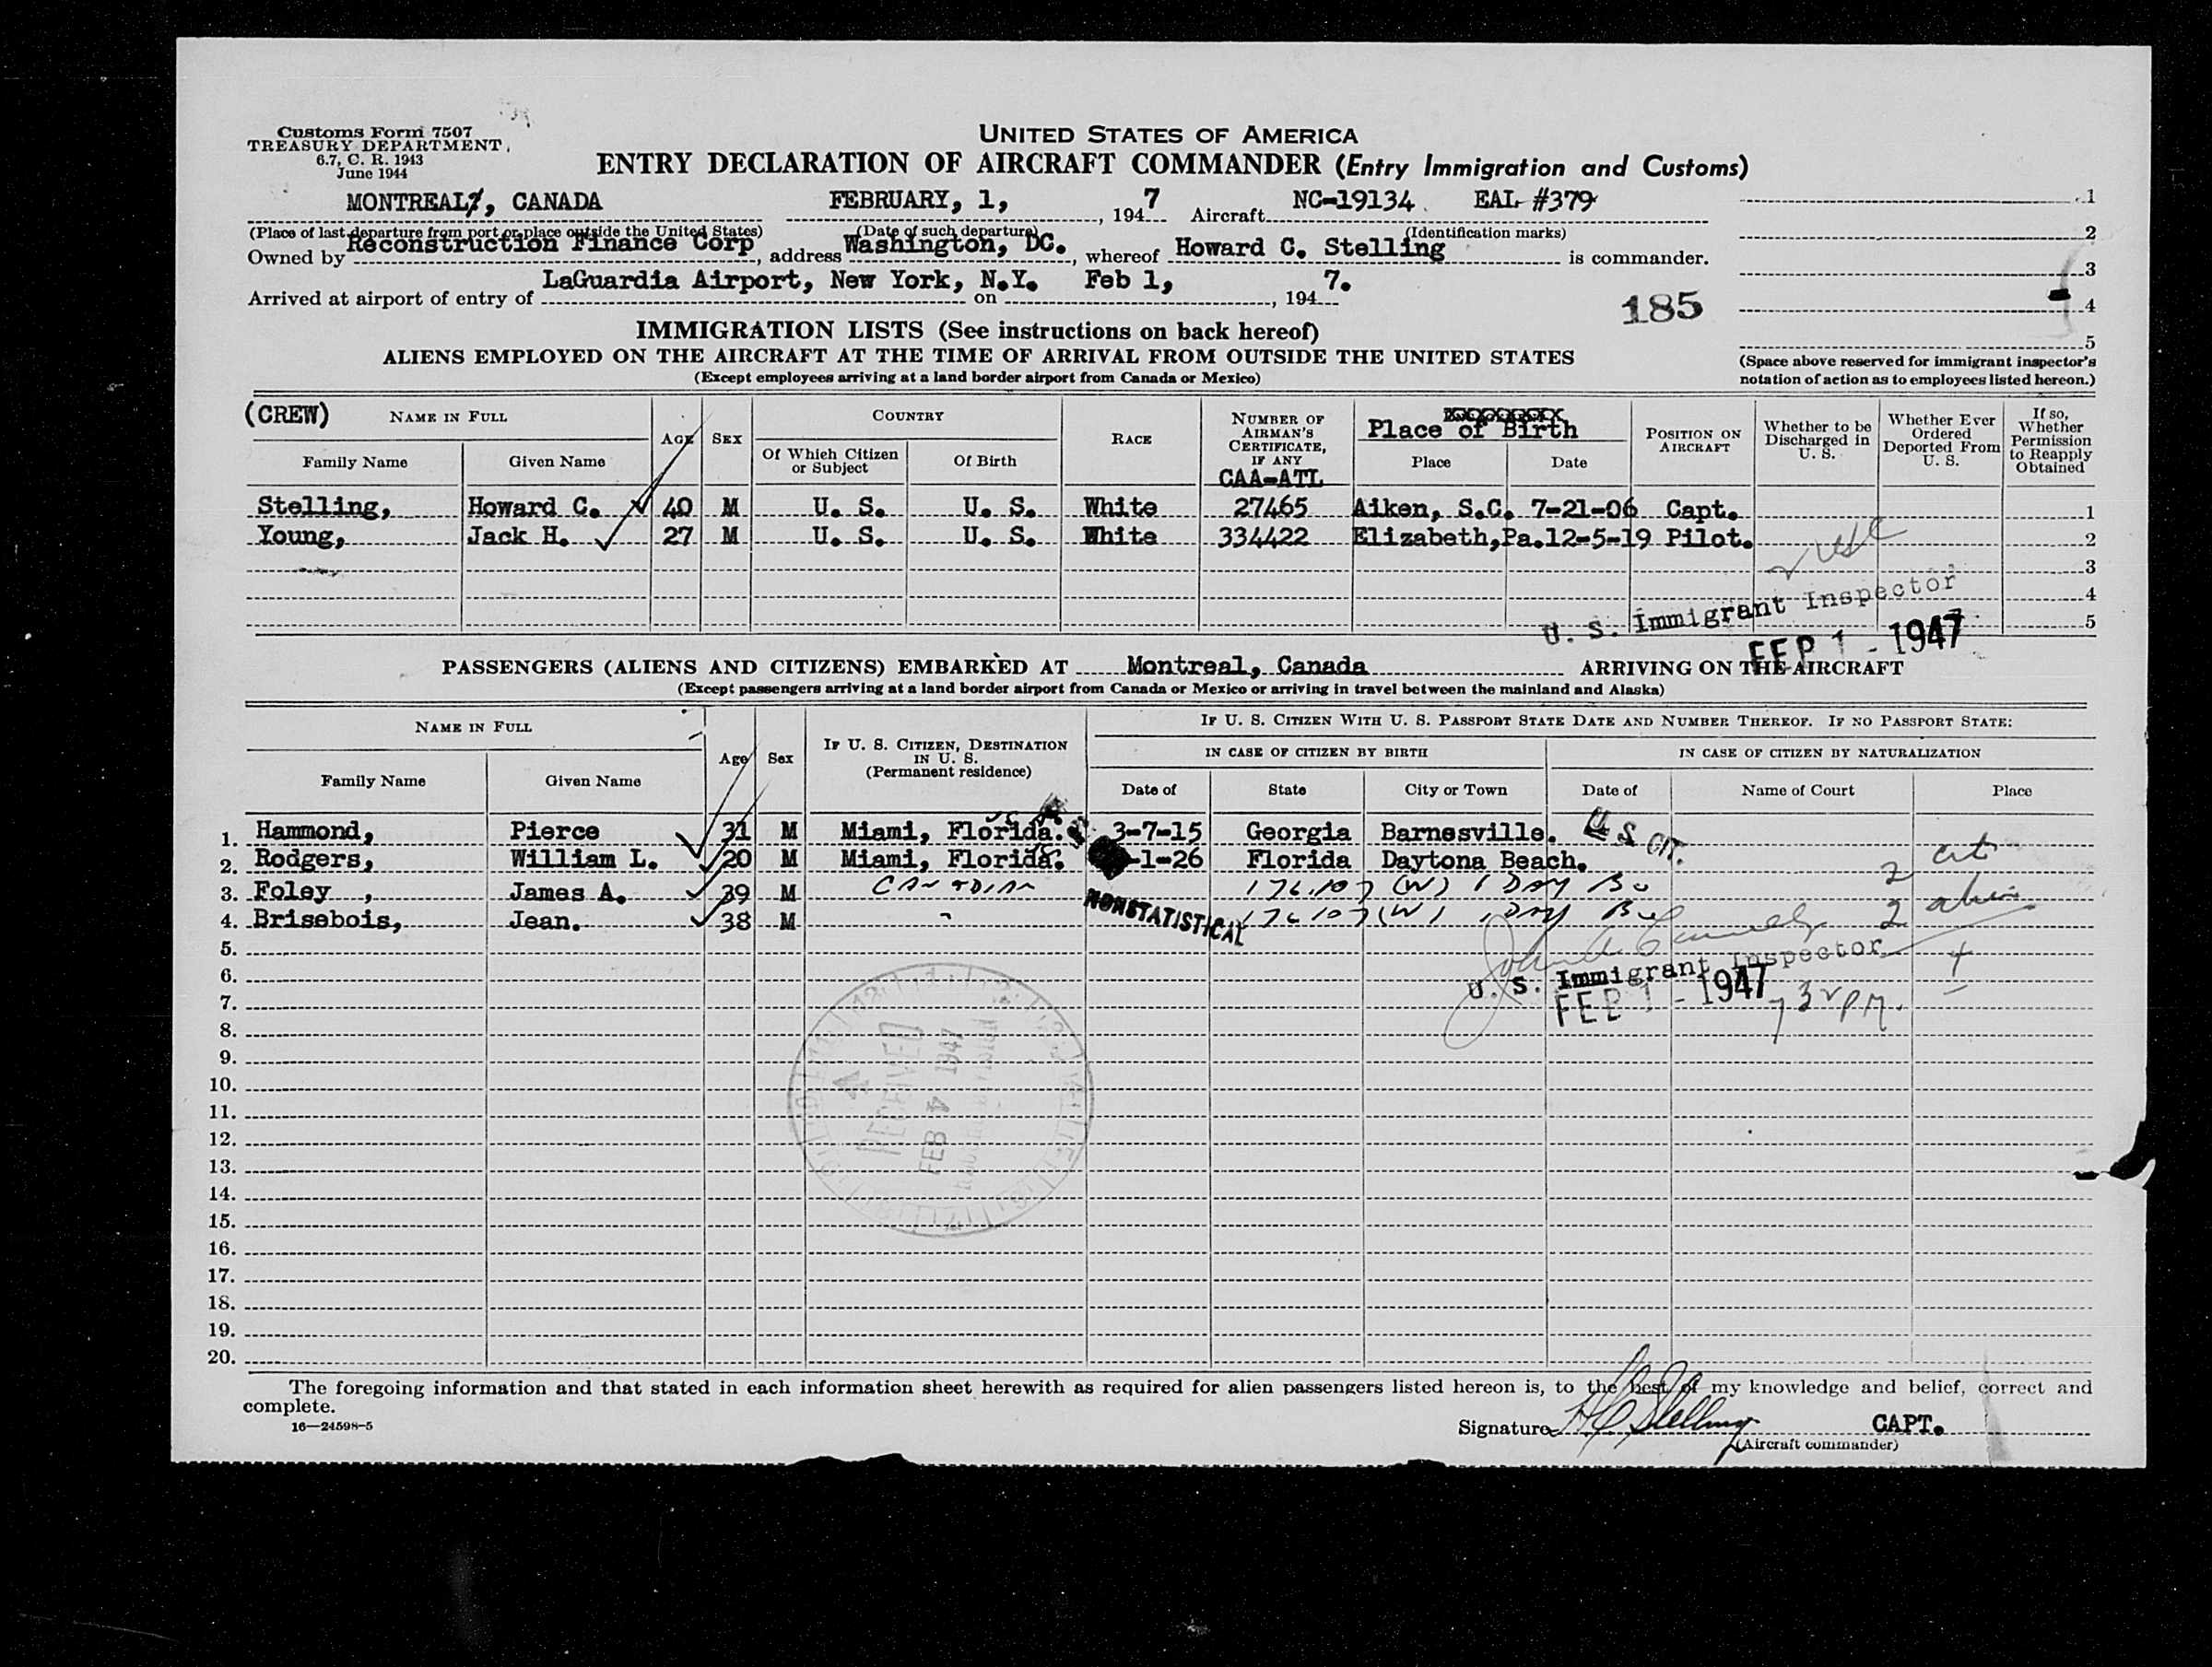 Customs Form 7507
TREASURY DEPARTMENT
6.7, C. R. 1943
June 1944
UNITED STATES OF AMERICA
ENTRY DECLARATION OF AIRCRAFT COMMANDER (Entry Immigration and Customs)
MONTREAL, CANADA FEBRUARY, 1, , 1947 Aircraft NC-19134 EAL #379 1
(Place of last departure from port or place outside the United States) (Date of such departure) (Identification marks) 2
Owned by Reconstruction Finance Corp, address Washington, DC., whereof Howard C. Stelling is commander.
3
Arrived at airport of entry of LaGuardia Airport, New York, N.Y. on Feb 1, , 1947.
185
4
5
IMMIGRATION LISTS (See instructions on back hereof)
ALIENS EMPLOYED ON THE AIRCRAFT AT THE TIME OF ARRIVAL FROM OUTSIDE THE UNITED STATES
(Except employees arriving at a land border airport from Canada or Mexico)
(Space above reserved for immigrant inspector's
notation of action as to employees listed hereon.)
(CREW) NAME IN FULL
Family Name Given Name
AGE
SEX
COUNTRY
Of Which Citizen or Subject
Of Birth
RACE
NUMBER OF AIRMAN'S CERTIFICATE, IF ANY
CAA-ATL
Place of Birth
Place Date
POSITION ON AIRCRAFT
Whether to be Discharged in U. S.
Whether Ever Ordered Deported From U. S.
If so, Whether Permission to Reapply Obtained
Stelling, Howard C. 40 M U. S. U. S. White 27465 Aiken, S.C. 7-21-06 Capt. 1
Young, Jack H. 27 M U. S. U. S. White 334422 Elizabeth,Pa. 12-5-19 Pilot. 2
3
4
5
2 USC
U. S. Immigrant Inspector
FEB 1 - 1947
PASSENGERS (ALIENS AND CITIZENS) EMBARKED AT Montreal, Canada ARRIVING ON THE AIRCRAFT
(Except passengers arriving at a land border airport from Canada or Mexico or arriving in travel between the mainland and Alaska)
NAME IN FULL
Family Name Given Name
Age
Sex
IF U. S. CITIZEN, DESTINATION IN U. S.
(Permanent residence)
IF U. S. CITIZEN WITH U. S. PASSPORT STATE DATE AND NUMBER THEREOF. IF NO PASSPORT STATE:
IN CASE OF CITIZEN BY BIRTH IN CASE OF CITIZEN BY NATURALIZATION
Date of State City or Town Date of Name of Court Place
1. Hammond, Pierce 31 M Miami, Florida. 3-7-15 Georgia Barnesville. U S CIT.
2. Rodgers, William L. 20 M Miami, Florida. -1-26 Florida Daytona Beach. 2 cit
3. Foley , James A. 39 M CANADIAN 176.107 (W) 1 DAY BU
4. Brisebois, Jean. 38 M " 176107 (W) 1 DAY BU 2 alien
NONSTATISTICAL
5.
U. S. Immigrant Inspector 4
6.
FEB 1 - 1947 7 32 PM.
7.
8.
9.
10.
11.
12.
13.
14.
15.
16.
17.
18.
19.
20.
RECEIVED
FEB 4 1947
The foregoing information and that stated in each information sheet herewith as required for alien passengers listed hereon is, to the best of my knowledge and belief, correct and
complete.
16—24598-5
Signature H C Stelling CAPT.
(Aircraft commander)